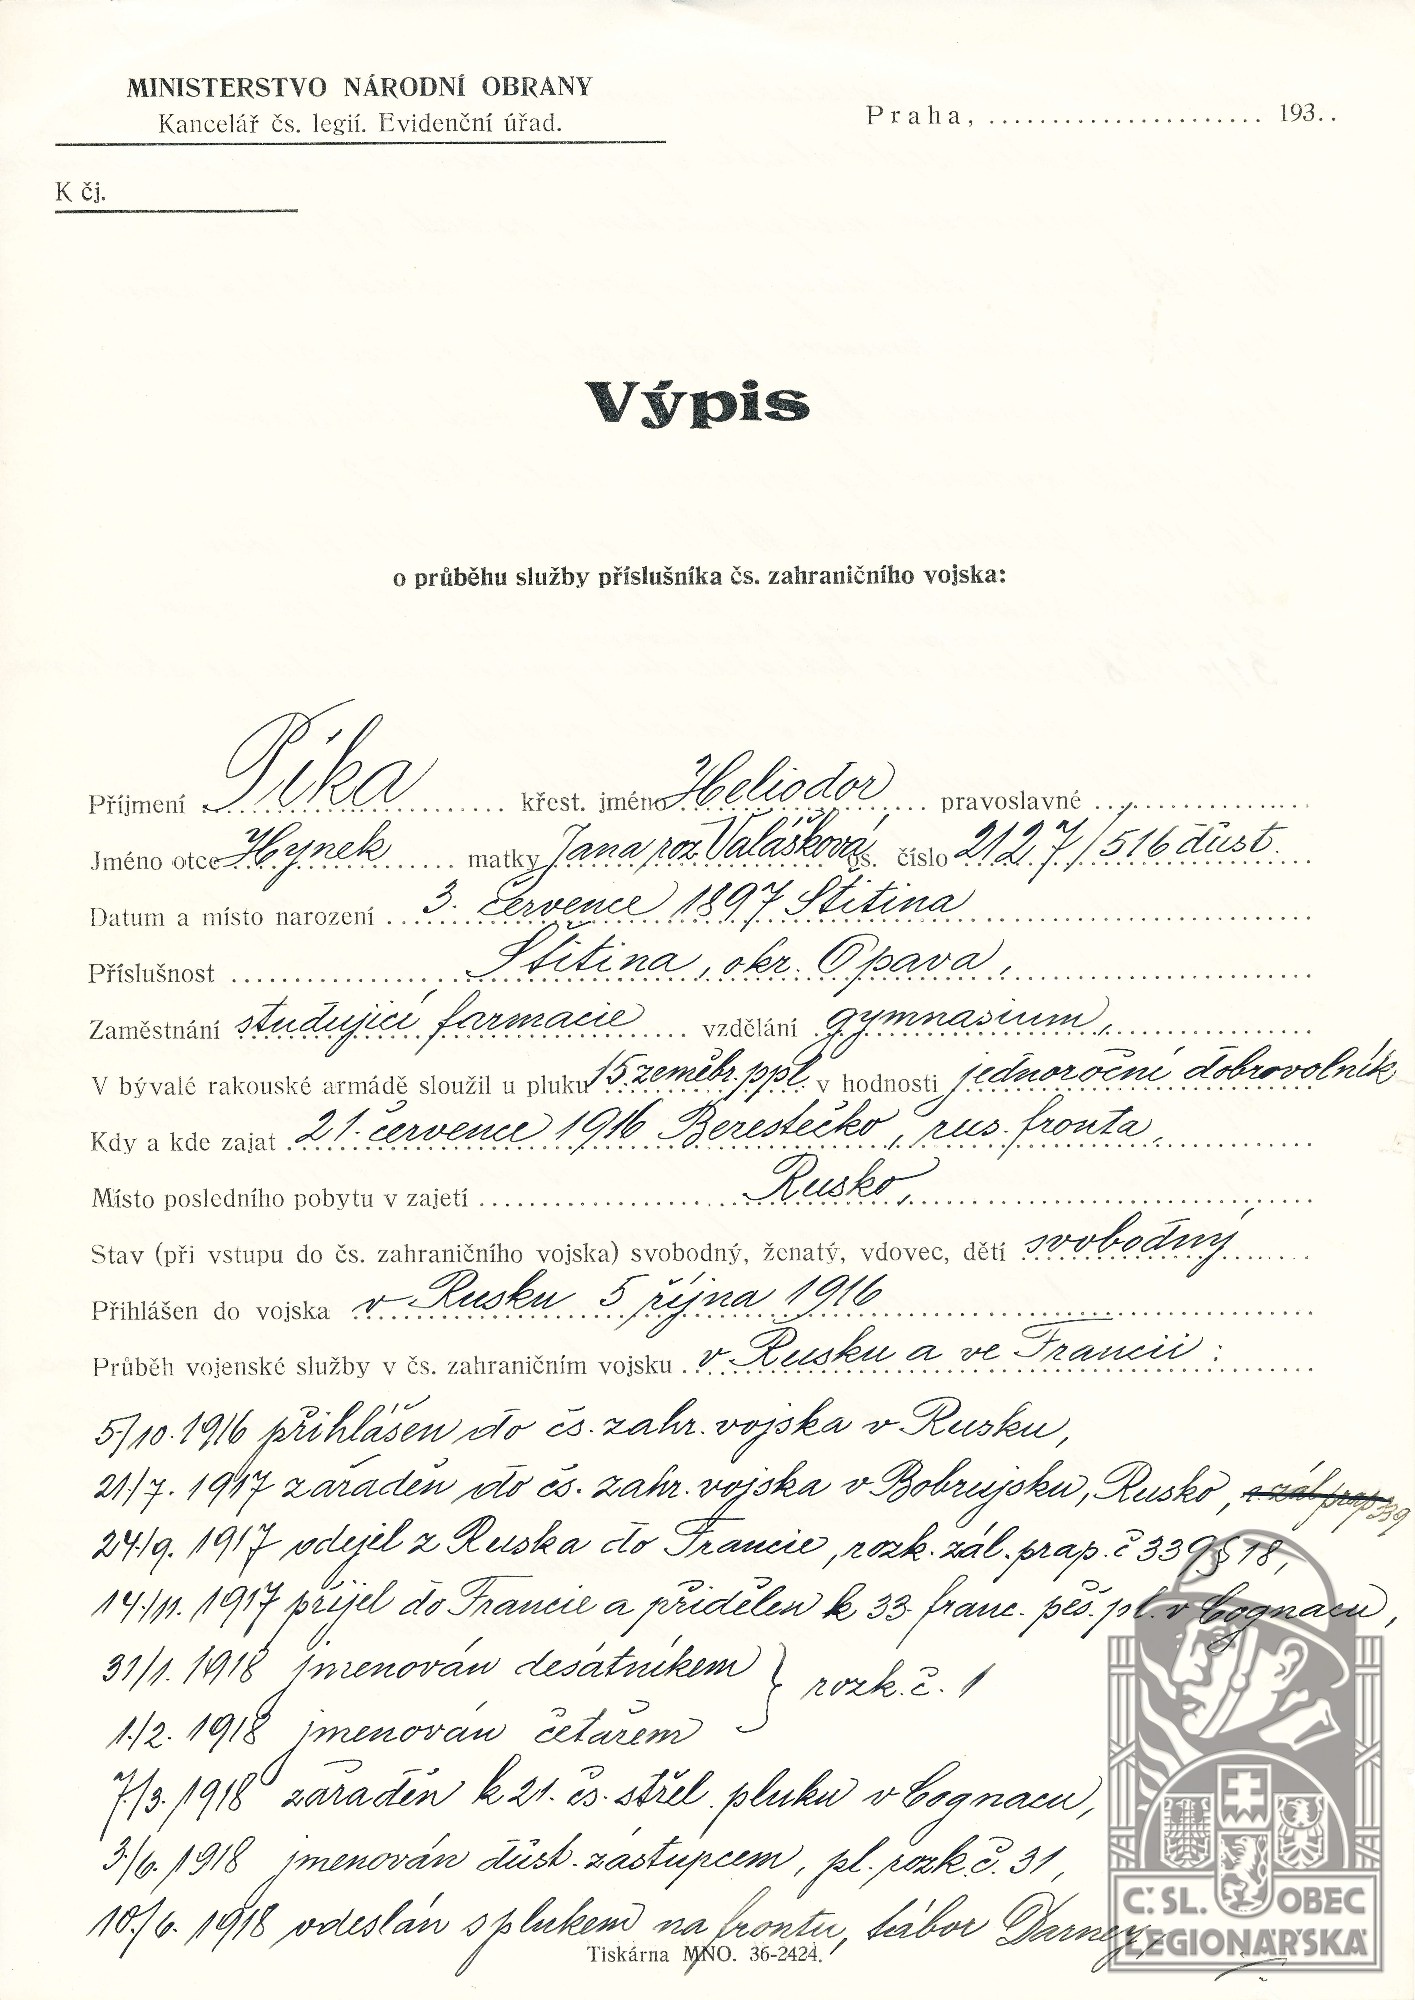 MINISTERSTVO NÁRODNÍ OBRANY
Kancelář čs. legií. Evidenční úřad.
Praha, ...................... 193..
K čj.
Výpis
o průběhu služby příslušníka čs. zahraničního vojska:
Příjmení Píka křest. jméno Heliodor, pravoslavné
Jméno otce Hynek matky Jana roz Valášková os. číslo 2127/516 důst.
Datum a místo narození 3. července 1897 Štítina
Příslušnost Štítina, okr. Opava,
Zaměstnání studující farmacie vzdělání gymnasium,
V bývalé rakouské armádě sloužil u pluku 15. zeměbr. ppl. v hodnosti jednoroční dobrovolník
Kdy a kde zajat 21. července 1916 Berestečko, rus. fronta,
Místo posledního pobytu v zajetí Rusko,
Stav (při vstupu do čs. zahraničního vojska) svobodný, ženatý, vdovec, dětí svobodný
Přihlášen do vojska v Rusku 5 října 1916
Průběh vojenské služby v čs. zahraničním vojsku v Rusku a ve Francii :
5/10. 1916 přihlášen do čs. zahr. vojska v Rusku,
21/7. 1917 zařaděn do čs. zahr. vojska v Bobrujsku, Rusko, r. zál prap 339
24./9. 1917 odejel z Ruska do Francie, rozk. zál. prap. č 339 § 18,
14./11. 1917 přijel do Francie a přidělen k 33. franc. pěš. pl. v Cognacu,
31/1. 1918 jmenován desátníkem } rozk. č. 1
1./2. 1918 jmenován četařem
7/3. 1918 zařaděn k 21. čs. střel. pluku v Cognacu,
3./6. 1918 jmenován důst. zástupcem, pl. rozk. č. 31,
10./6. 1918 odeslán s plukem na frontu, tábor Darney,
Tiskárna MNO. 36-2424.
Č.SL. OBEC
LEGIONÁŘSKÁ